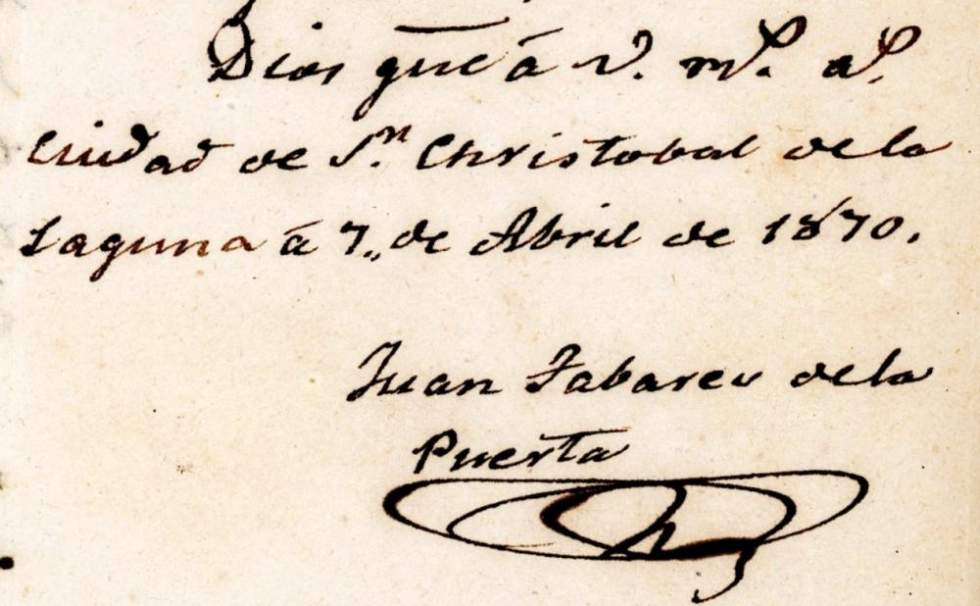 Dios gue á V. ms. as.
Ciudad de Sn. Christobal de la
Laguna á 7,, de Abril de 1870.
Juan Tabares de la
Puerta